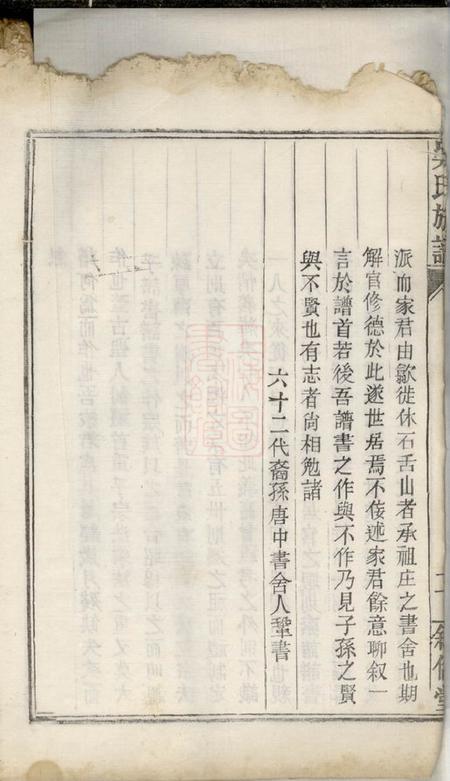 派而家君由歙徙休石舌山者承祖庄之書舍也期
解官修德於此遂世居焉不佞述家君餘意聊叙一
言於譜首若後吾譜書之作與不作乃見子孫之賢
與不賢也有志者尙相勉諸
六十二代裔孫唐中書舍人鞏書
吳氏族譜
二